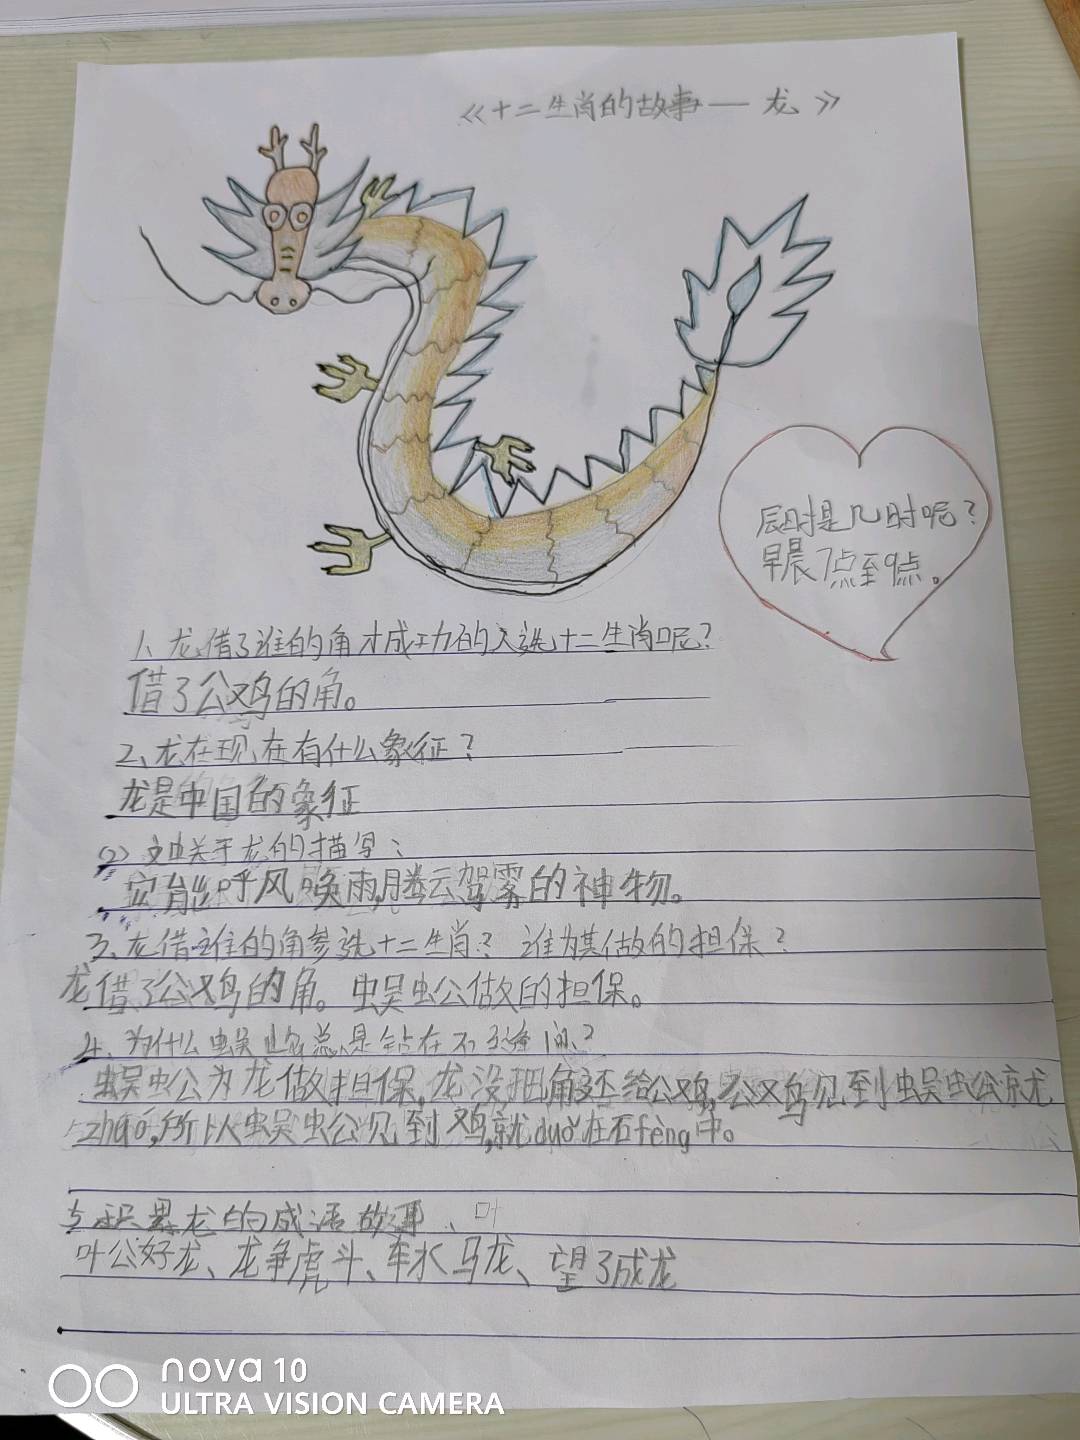 《十二生肖的故事——龙》
辰时是几时呢？
早晨7点至9点。
1、龙借了谁的角才成功的入选十二生肖呢？
借了公鸡的角。
2、龙在现在有什么象征？
龙是中国的象征
(2) 文中关于龙的描写：
能呼风唤雨,腾云驾雾的神物。
3、龙借谁的角参选十二生肖？谁为其做的担保？
龙借了公鸡的角。蜈虫公做的担保。
4、为什么蜈蚣总是钻在石缝间？
蜈虫公为龙做担保,龙没把角还给公鸡,公鸡见到蜈虫公就
zhuó,所以蜈虫公见到鸡,就duǒ在石fèng中。
5 积累龙的成语故事、叶
叶公好龙、龙争虎斗、车水马龙、望子成龙
nova 10
ULTRA VISION CAMERA